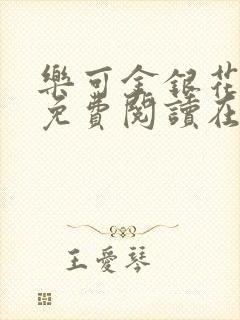 樂可金銀花
免費閱讀在
王愛琴